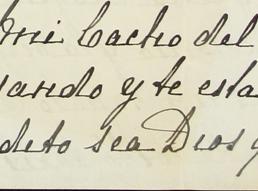 mi Cacho del
uando y te esta
dito sea Dios q